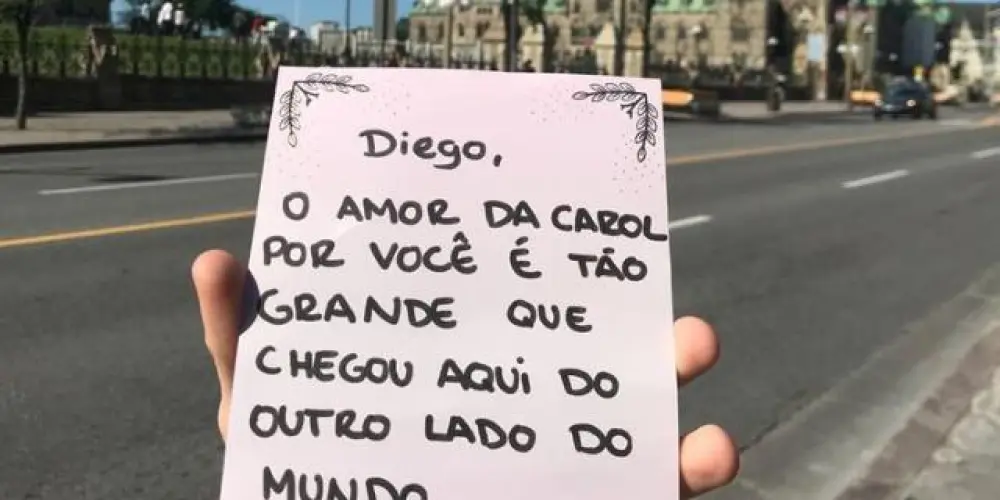 Diego,
O AMOR DA CAROL
POR VOCÊ É TÃO
GRANDE QUE
CHEGOU AQUI DO
OUTRO LADO DO
MUNDO